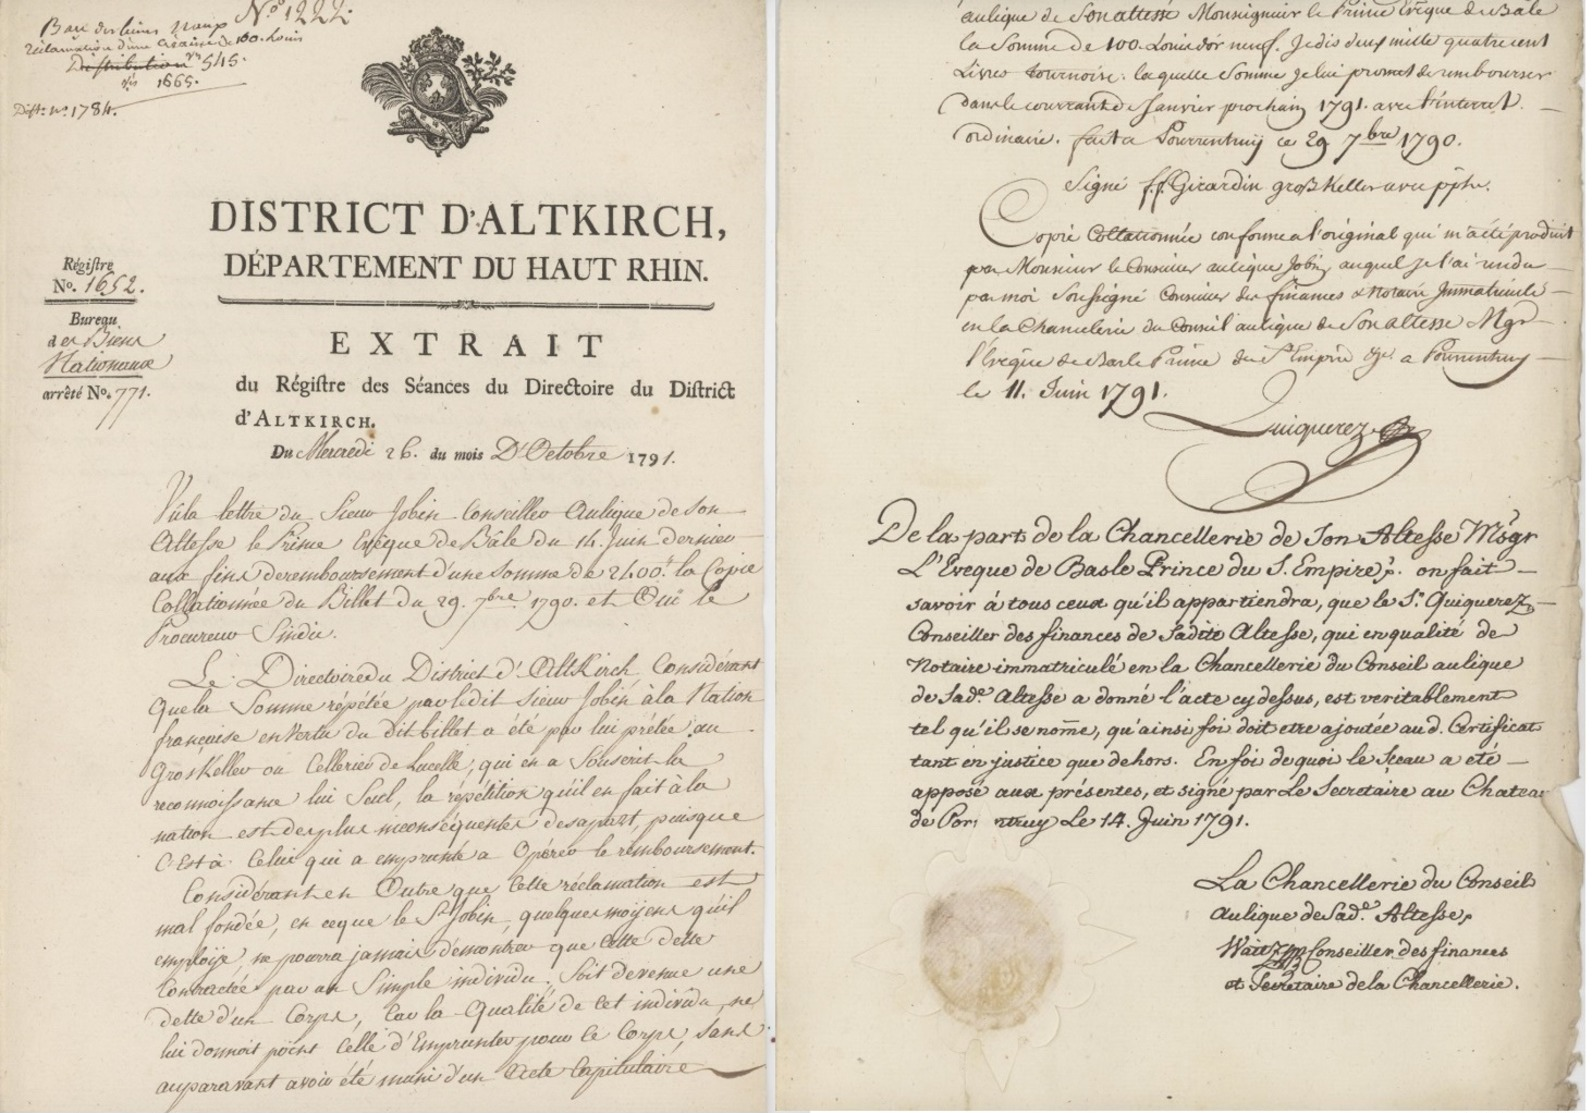 N.º 1222.
Bau des biens naux
réclamation d'une créance de 100. Louis
Distribution nº 545.
1665.
Distr. nº 1784.
DISTRICT D'ALTKIRCH,
DÉPARTEMENT DU HAUT RHIN.
Régiſtre
No. 1652.
Bureau
des Biens
Nationaux
arrêté No. 771.
EXTRAIT
du Régiſtre des Séances du Directoire du Diſtrict
d'ALTKIRCH.
Du Mercredi 26. du mois D'Octobre 1791.
Vû la lettre du Sieur Jobin Conseiller Aulique de Son
Altesse le Prince Evêque de Bâle du 14. Juin dernier
aux fins de remboursement d'une somme de 2400.# la Copie
Collationnée du Billet du 29. 7bre. 1790. et Oui le
Procureur Sindic.
Le Directoire du District d'Altkirch, Considérant
Que la Somme répétée par ledit Sieur Jobin à la Nation
françoise en vertu du dit billet a été par lui prêtée au
Groskeller ou Cellerier de Lucelle, qui en a Souscrit la
reconnoissance lui Seul, la répétition qu'il en fait à la
nation est des plus inconséquentes de sa part, puisque
C'est à Celui qui a emprunté a Opérer le remboursement.
Considérant en Outre que Cette réclamation est
mal fondée, en ce que le Sr. Jobin, quelques moÿens qu'il
emploÿe, ne pourra jamais démontrer que Cette dette
Contractée par un Simple individu, Soit devenue une
dette d'un Corps, Car la Qualité de Cet individu, ne
lui donnoit point Celle d'Emprunter pour le Corps, sans
auparavant avoir été muni d'un Acte Capitulaire
aulique de Son altesse Monsigneur le Prince Evêque de Bâle
la Somme de 100. Louis d'or neuf. Je dis deux mille quatre cent
Livres tournois. la quelle Somme je lui promet de rembourser
dans le courrant de Janvier prochain 1791. avec l'interret
ordinaire. fait a Pourrentruÿ ce 29 7bre 1790.
Signé f. f. Girardin großKeller avec pphe.
Copie Collationnée conforme a l'original qui m'a été produit
par Monsieur le Conseiller aulique Jobin auquel je l'ai rendu
par moi Soussigné Conseiller des finances & Notaire Immatriculé
en la Chancelerie du Conseil aulique de Son altesse Mgr
l'Evêque de Basle Prince du St. Empire &c. a Pourentruy
le 11. Juin 1791.
Quiquerez
De la part de la Chancellerie de Son Altesse Msgr
L'Eveque de Basle Prince du S. Empire p. on fait
savoir à tous ceux qu'il appartiendra, que le Sr. Quiquerez,
Conseiller des finances de Sadite Altesse, qui en qualité de
Notaire immatriculé en la Chancellerie du Conseil aulique
de Sad.e Altesse a donné l'acte cy dessus, est veritablement
tel qu'il se nome, qu'ainsi foi doit etre ajoutée aud. Certificat
tant en justice que dehors. En foi de quoi le Sceau a eté
apposé aux présentes, et signé par Le Secretaire au Chateau
de Porrentruy Le 14. Juin 1791.
La Chancellerie du Conseil
Aulique de Sad.e Altesse,
Conseiller des finances
et Secretaire de la Chancellerie.